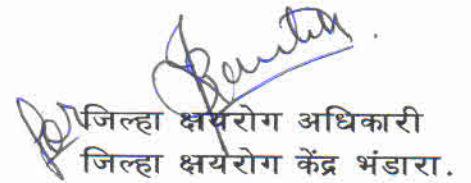 जिल्हा क्षयरोग अधिकारी
जिल्हा क्षयरोग केंद्र भंडारा.